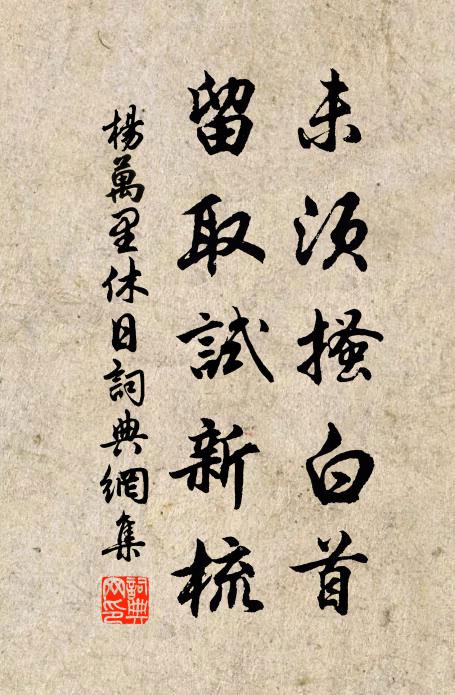 未須搔白首
留取試新梳
楊萬里休日詞典網集
詞典网印